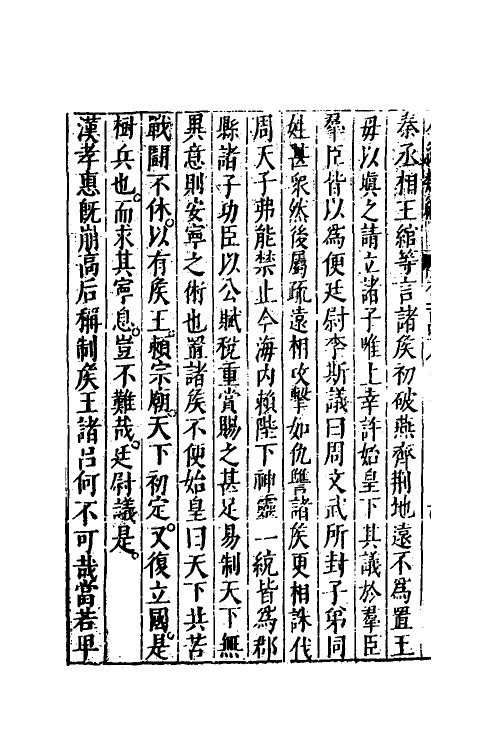 秦丞相王綰等言諸矦初破燕齊荆地遠不爲置王
毋以塡之請立諸子唯上幸許始皇下其議於羣臣
羣臣皆以爲便廷尉李斯議曰周文武所封子弟同
姓甚衆然後屬疏遠相攻擊如仇讐諸矦更相誅伐
周天子弗能禁止今海內賴陛下神靈一統皆爲郡
縣諸子功臣以公賦稅重賞賜之甚足易制天下無
異意則安寧之術也置諸矦不便始皇曰天下共苦
戰鬪不休。以有矦王。賴宗廟。天下初定。又復立國。是
樹兵也。而求其寧息。豈不難哉。廷尉議是。
漢孝惠旣崩高后稱制矦王諸呂何不可哉當若平